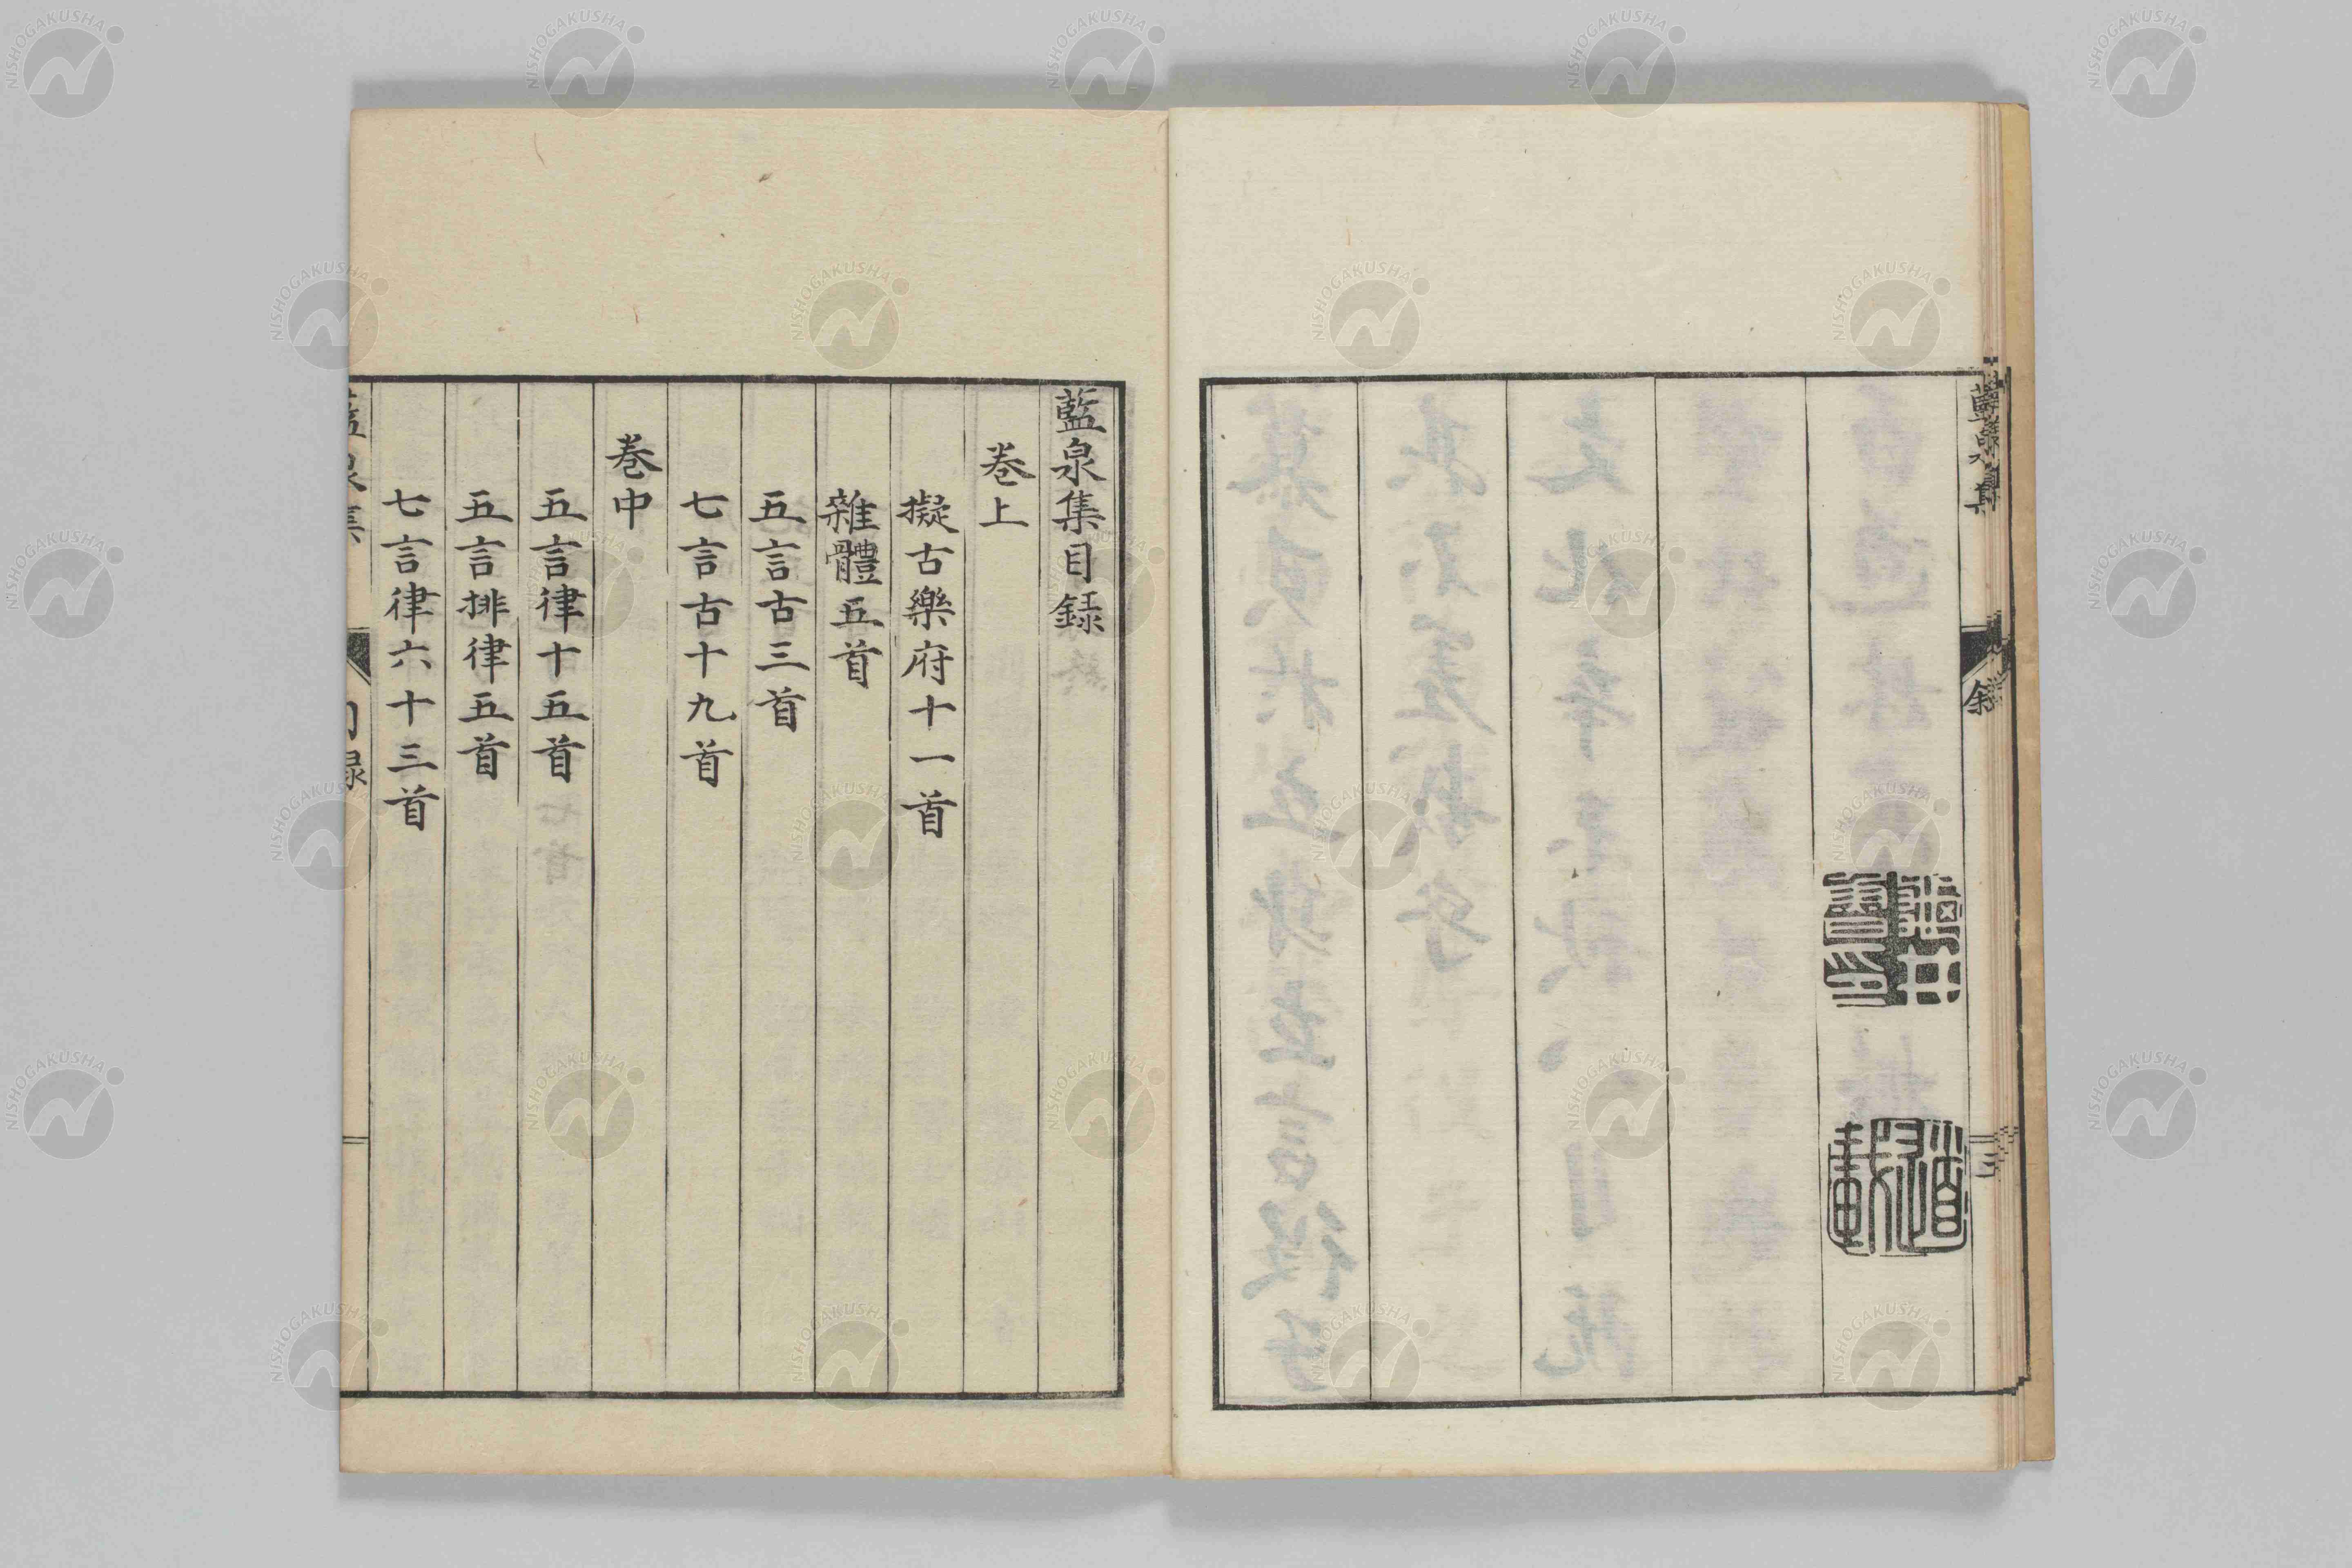 藍泉集目錄
卷上
擬古樂府十一首
雜體五首
五言古三首
七言古十九首
卷中
五言律十五首
五言排律五首
七言律六十三首
NISHOGAKUSHA